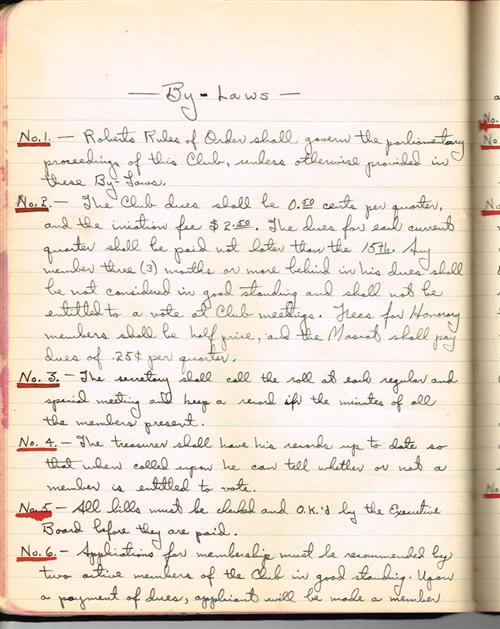 — By-Laws —
No. 1. — Roberts Rules of Order shall govern the parliamentary
proceedings of this Club, unless otherwise provided in
these By-Laws.
No. 2. — The Club dues shall be 0.50 cents per quarter,
and the iniation fee $2.50. The dues for each current
quarter shall be paid not later than the 15th. Any
member three (3) months or more behind in his dues shall
be not considered in good standing and shall not be
entitled to a vote at Club meetings. Fees for Honorary
members shall be half price, and the Mascot shall pay
dues of .25¢ per quarter.
No. 3. — The secretary shall call the roll at each regular and
special meeting and keep a record of the minutes of all
the members present.
No. 4. — The treasurer shall have his records up to date so
that when called upon he can tell whether or not a
member is entitled to vote.
No. 5 — All bills must be checked and O.K.'d by the Executive
Board before they are paid.
No. 6. — Applications for membership must be recommended by
two active members of the Club in good standing. Upon
a payment of dues, applicant will be made a member
a
No.
No.
No
No